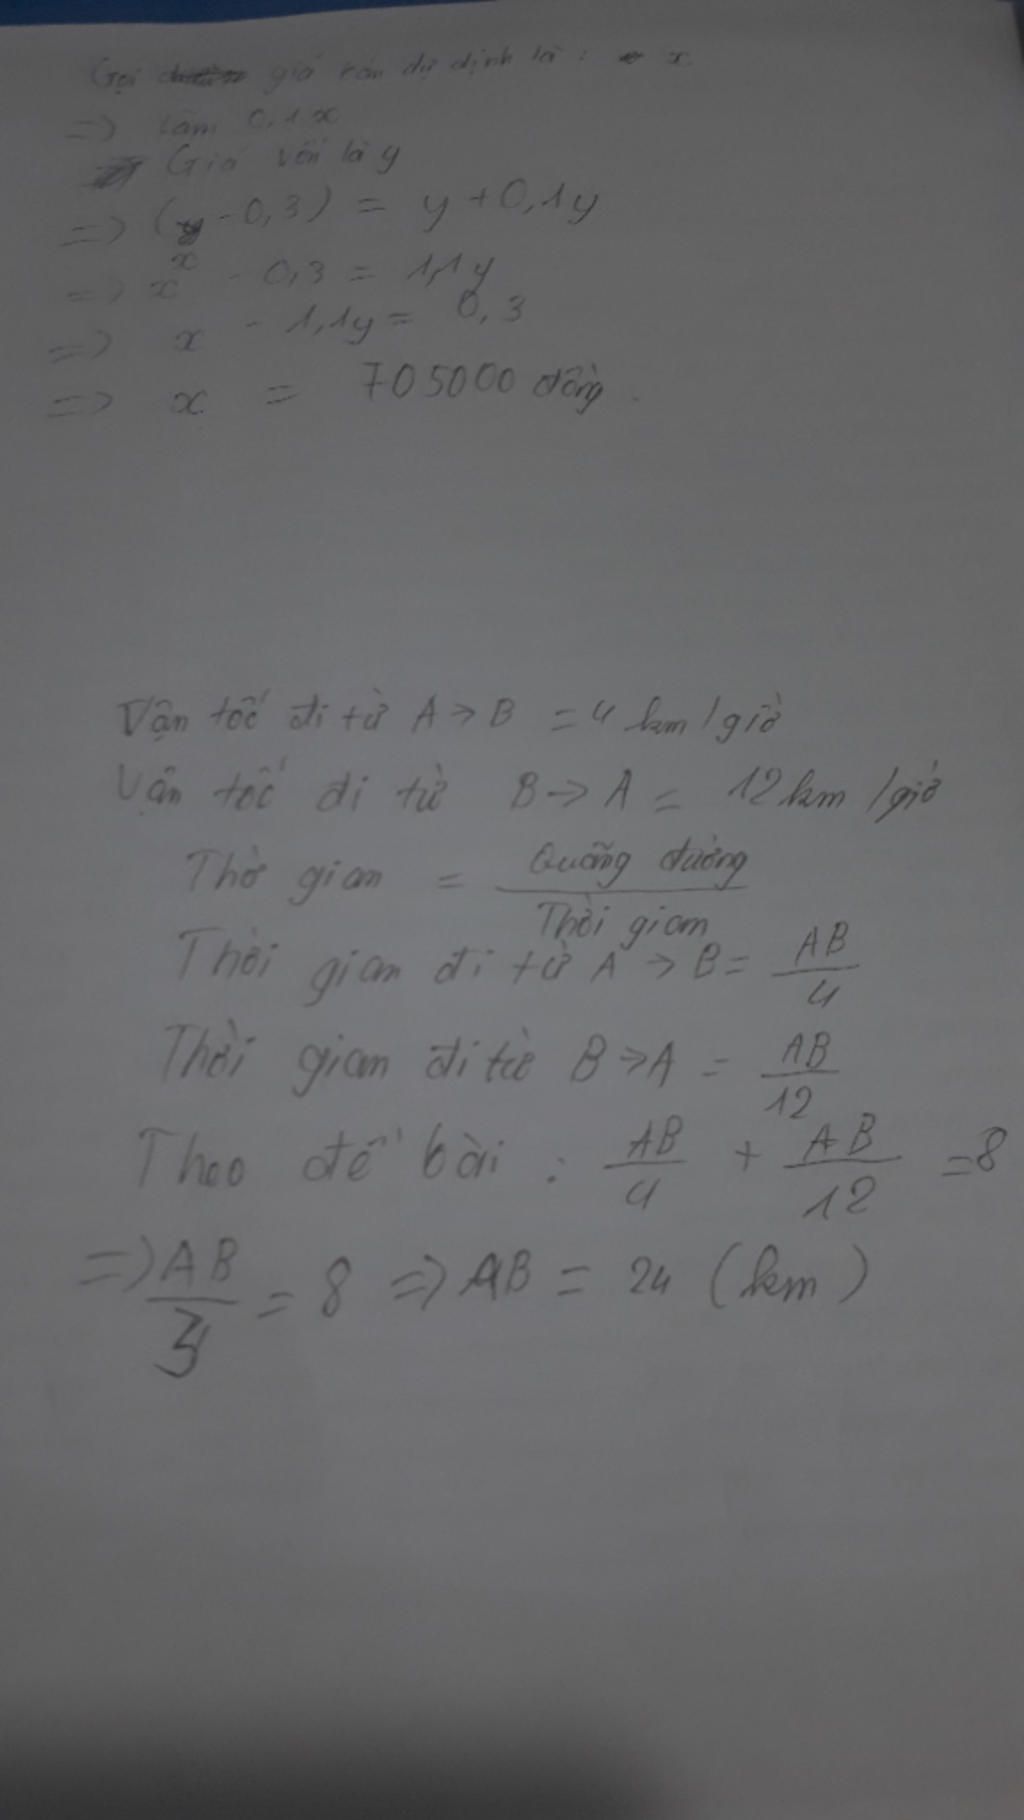 Gọi giá bán dự định là: x
=> Lãm 0,1x
Giá vốn là y
=> (x - 0,3) = y + 0,1y
=> x - 0,3 = 1,1y
=> x - 1,1y = 0,3
=> x = 705000 đồng.
Vận tốc đi từ A → B = 4 km/giờ
Vận tốc đi từ B → A = 12 km/giờ
Thờ gian = Quãng đường / Thời gian
Thời gian đi từ A → B = AB/4
Thời gian đi từ B → A = AB/12
Theo đề bài : AB/4 + AB/12 = 8
=> AB/3 = 8 => AB = 24 (km)